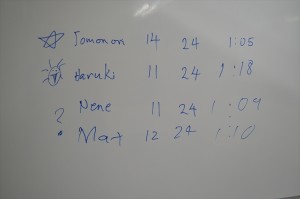 Tomonori 14 24 1:05
Haruki 11 24 1:18
? Nene 11 24 1:09
Max 12 24 1:10